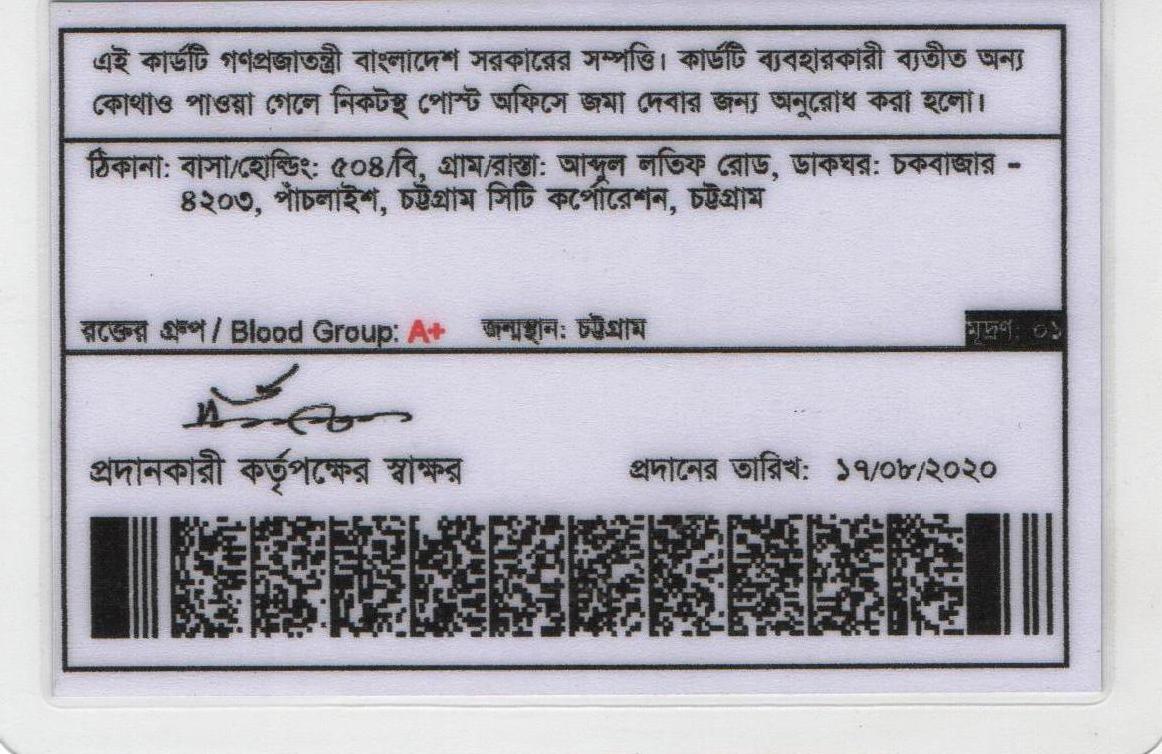 এই কার্ডটি গণপ্রজাতন্ত্রী বাংলাদেশ সরকারের সম্পত্তি। কার্ডটি ব্যবহারকারী ব্যতীত অন্য
কোথাও পাওয়া গেলে নিকটস্থ পোস্ট অফিসে জমা দেবার জন্য অনুরোধ করা হলো।
ঠিকানা: বাসা/হোল্ডিং: ৫০৪/বি, গ্রাম/রাস্তা: আব্দুল লতিফ রোড, ডাকঘর: চকবাজার -
৪২০৩, পাঁচলাইশ, চট্টগ্রাম সিটি কর্পোরেশন, চট্টগ্রাম
রক্তের গ্রুপ / Blood Group: A+ জন্মস্থান: চট্টগ্রাম মূদ্রণ: ০১
প্রদানকারী কর্তৃপক্ষের স্বাক্ষর প্রদানের তারিখ: ১৭/০৮/২০২০